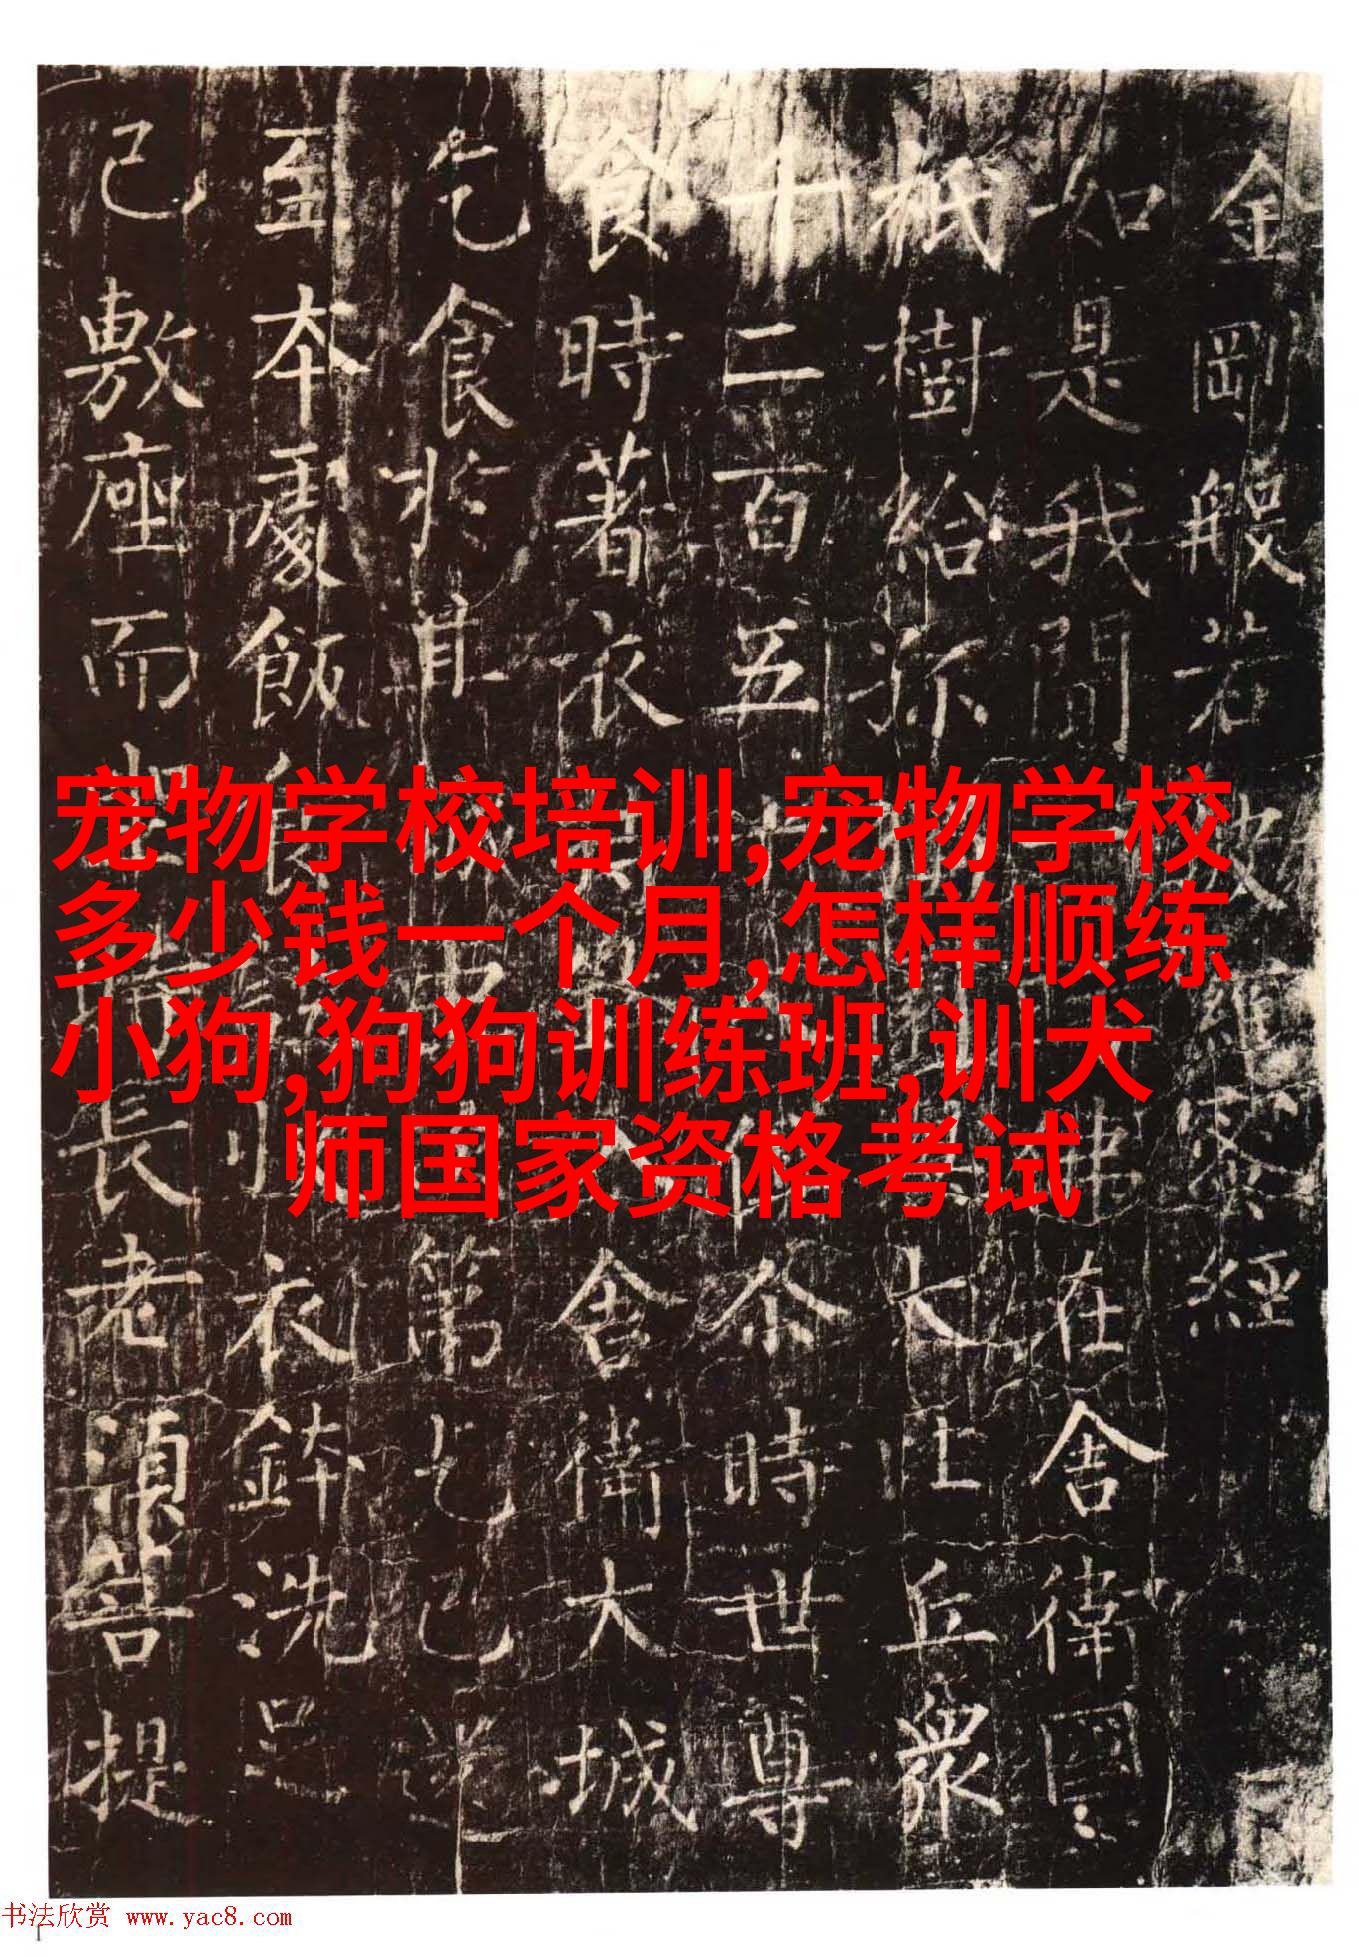 金剛般若波羅蜜經
如是我聞佛在舍衛國
祇樹給孤大比丘衆
千二百五十人尒時世尊
食時著衣入舍衛大城
乞食於其城中第乞已還
至本處飯食衣鉢洗足
已敷座而時長老須菩提
宠物学校培训,宠物学校
多少钱一个月,怎样顺练
小狗,狗狗训练班,训犬
师国家资格考试
书法欣赏 www.yac8.com